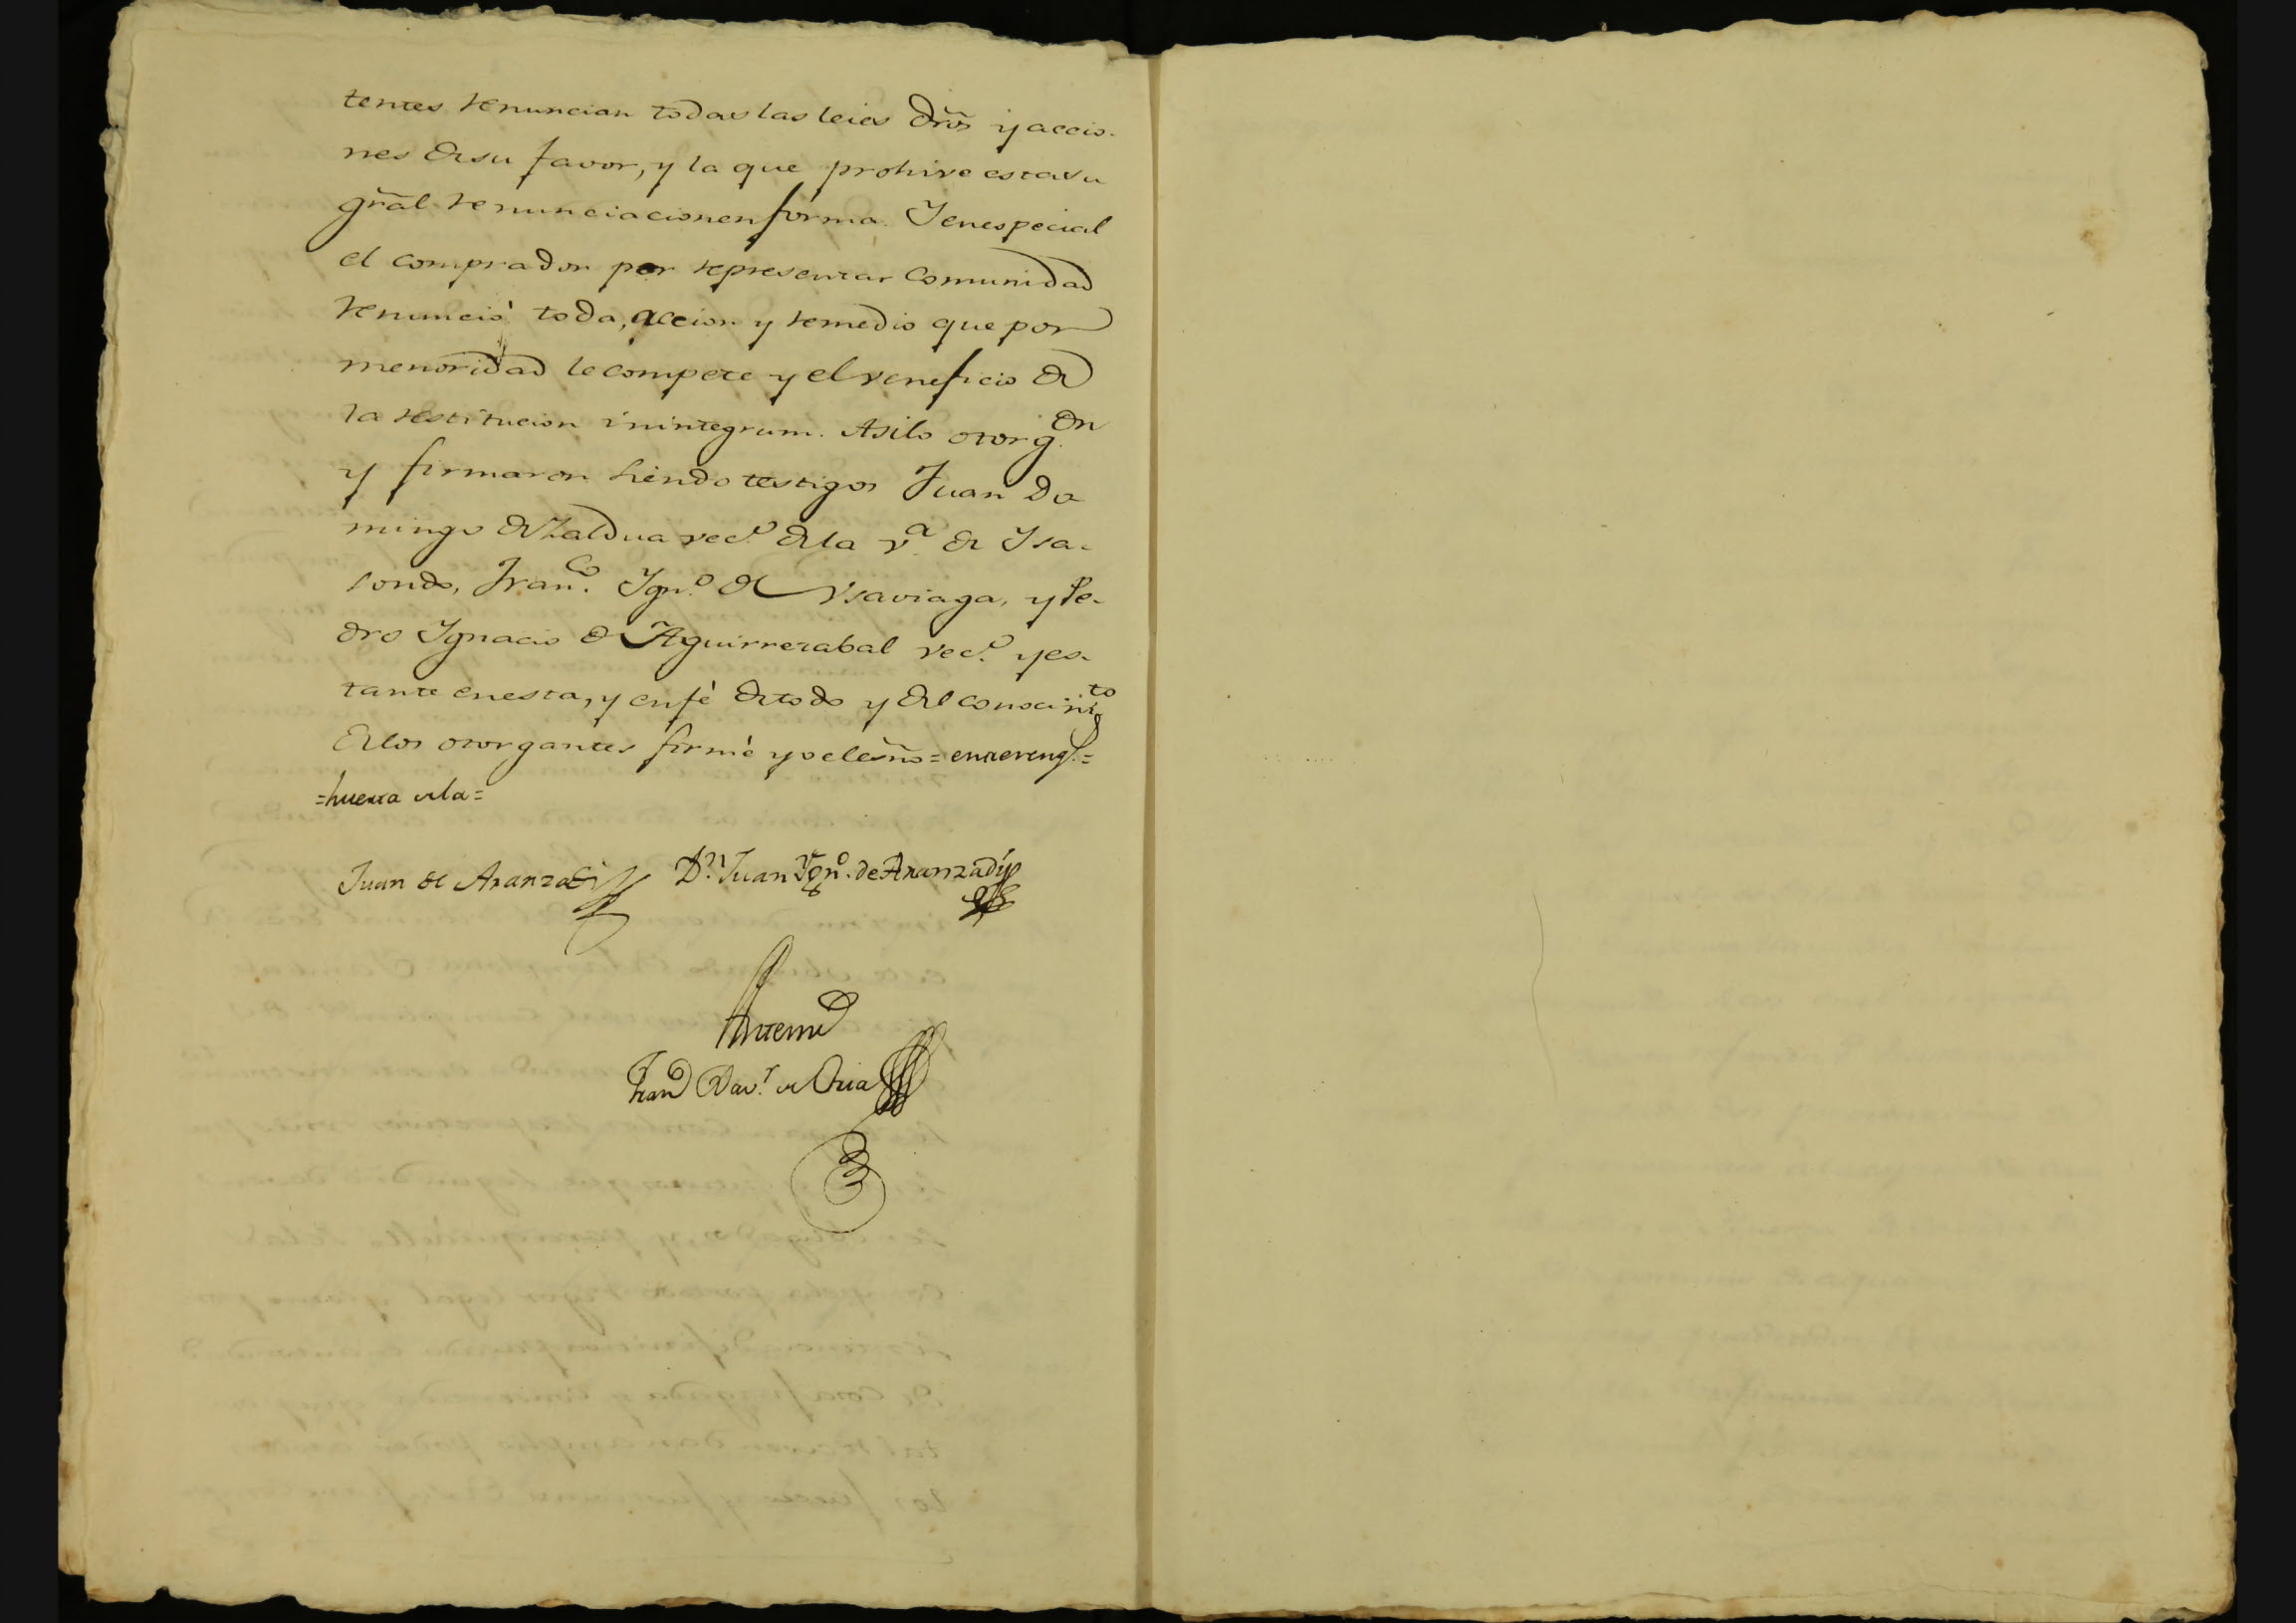 tentes renuncian todas las leies dr̃os y accio-
nes de su favor, y la que prohive esta su
gr̃al renunciacion en forma. Y en especial
el comprador por representar Comunidad
renunciò toda, accion y remedio que por
menoridad le compete y el veneficio de
la restitucion inintegrum. Asi lo otorg.on
y firmaron siendo testigos Juan Do
mingo de Zaldua vec.o de la v.a de Isa-
sondo, Fran.co Ign.o de Usaviaga, y Pe-
dro Ignacio de Aguirrezabal vec.o y es-
tante en esta, y en fè de todo y del conocim.to
de los otorgantes firmè yo el es̃no = entrereng.s =
= huerta de la =
Juan de Aranzadi D.n Juan Ygn.o de Aranzadi
Antemi
Fran.co Xav.r de Oria